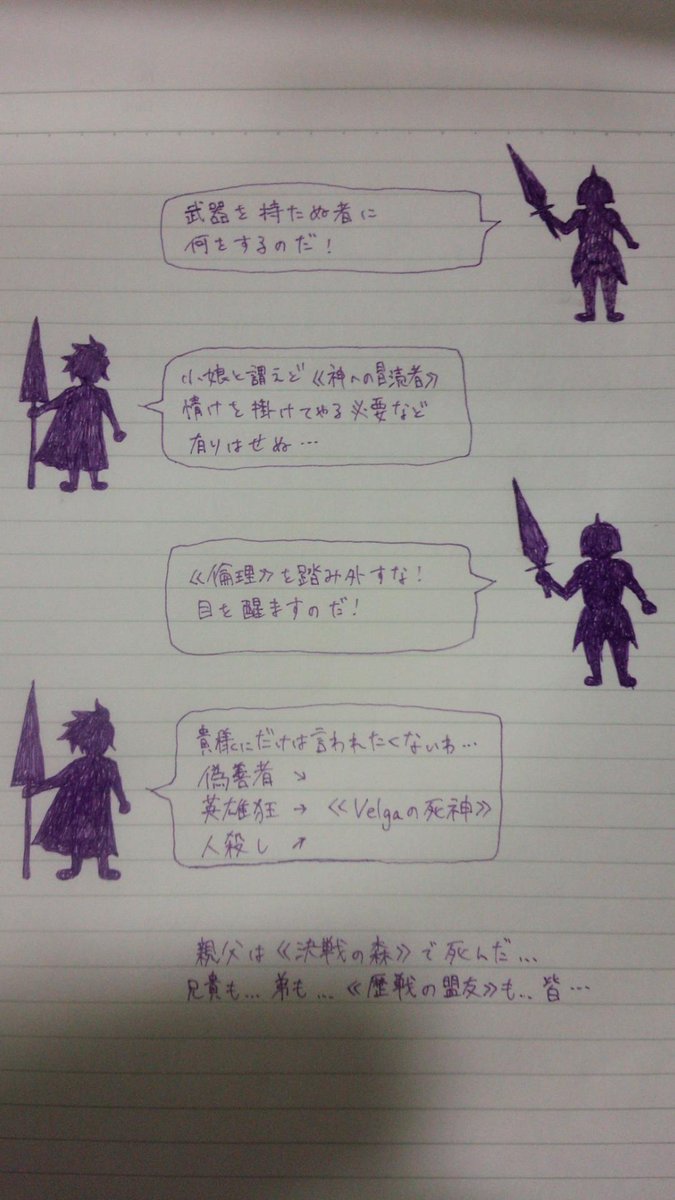 武器を持たぬ者に
何をするのだ!
小娘と謂えど《神への冒涜者》
情けを掛けてやる必要など
有りはせぬ…
《倫理》を踏み外すな!
目を醒ますのだ!
貴様にだけは言われたくないわ…
偽善者 ↘
英雄狂 → 《Velgaの死神》
人殺し ↗
親父は《決戦の森》で死んだ…
兄貴も…弟も…《歴戦の盟友》も…皆…